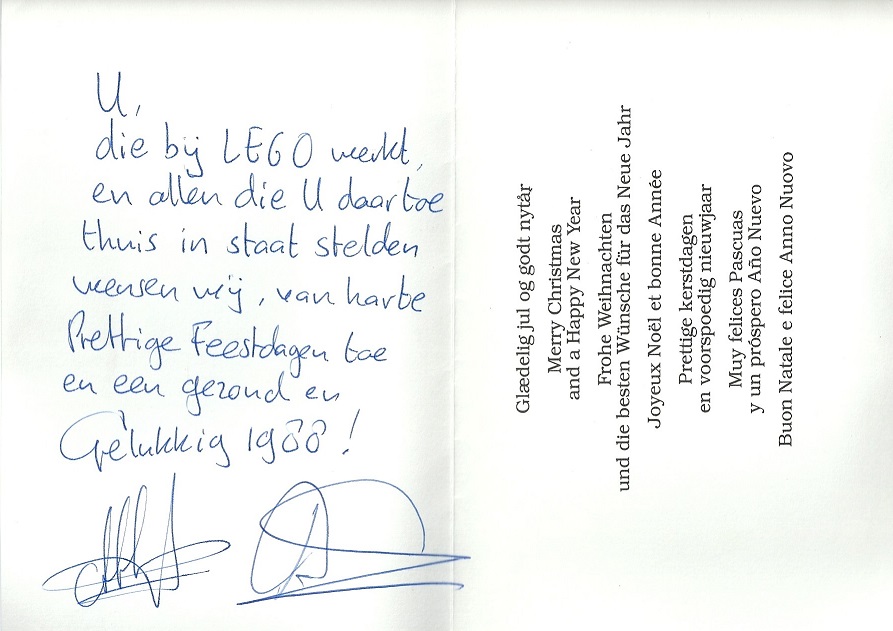 U,
die bij LEGO werkt,
en allen die U daartoe
thuis in staat stelden
wensen wij, van harte
Prettige Feestdagen toe
en een gezond en
Gelukkig 1988!
Glædelig jul og godt nytår
Merry Christmas
and a Happy New Year
Frohe Weihnachten
und die besten Wünsche für das Neue Jahr
Joyeux Noël et bonne Année
Prettige kerstdagen
en voorspoedig nieuwjaar
Muy felices Pascuas
y un próspero Año Nuevo
Buon Natale e felice Anno Nuovo